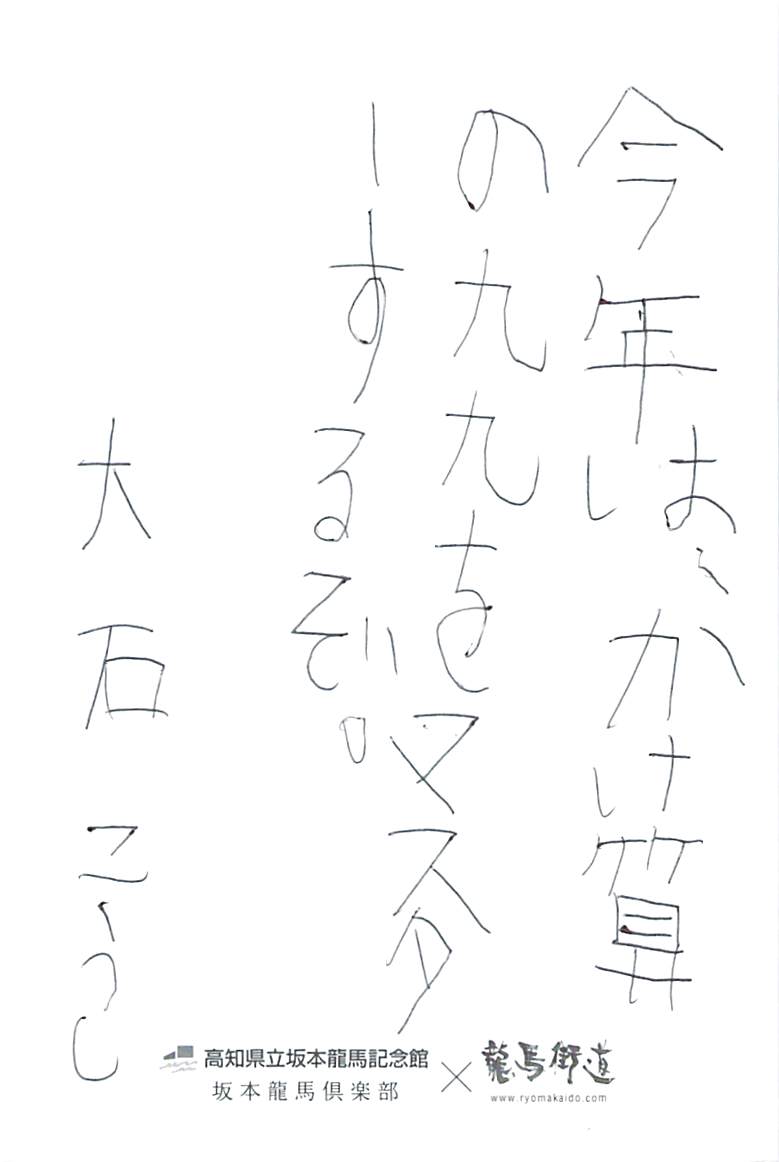 今年は、かけ算
の九九をマスタ
ーするぞ。
大石こうし
高知県立坂本龍馬記念館
坂本龍馬倶楽部
×
龍馬街道
www.ryomakaido.com